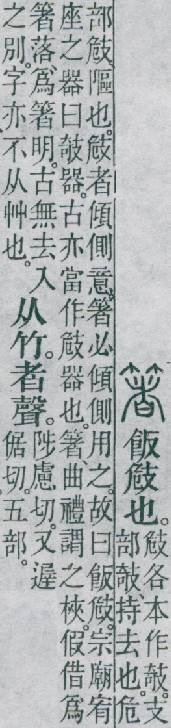 箸飯㩻也。㩻各本作敧。支
部敧、持去也。危
部㩻、䧢也。㩻者傾側意。箸必傾側用之。故曰飯㩻。宗廟宥
座之器曰敧器。古亦當作㩻器也。箸曲禮謂之梜。假借爲
箸落、爲箸明。古無去入
之別。字亦不从艸也。
从竹。者聲。陟慮切。又遟
倨切。五部。